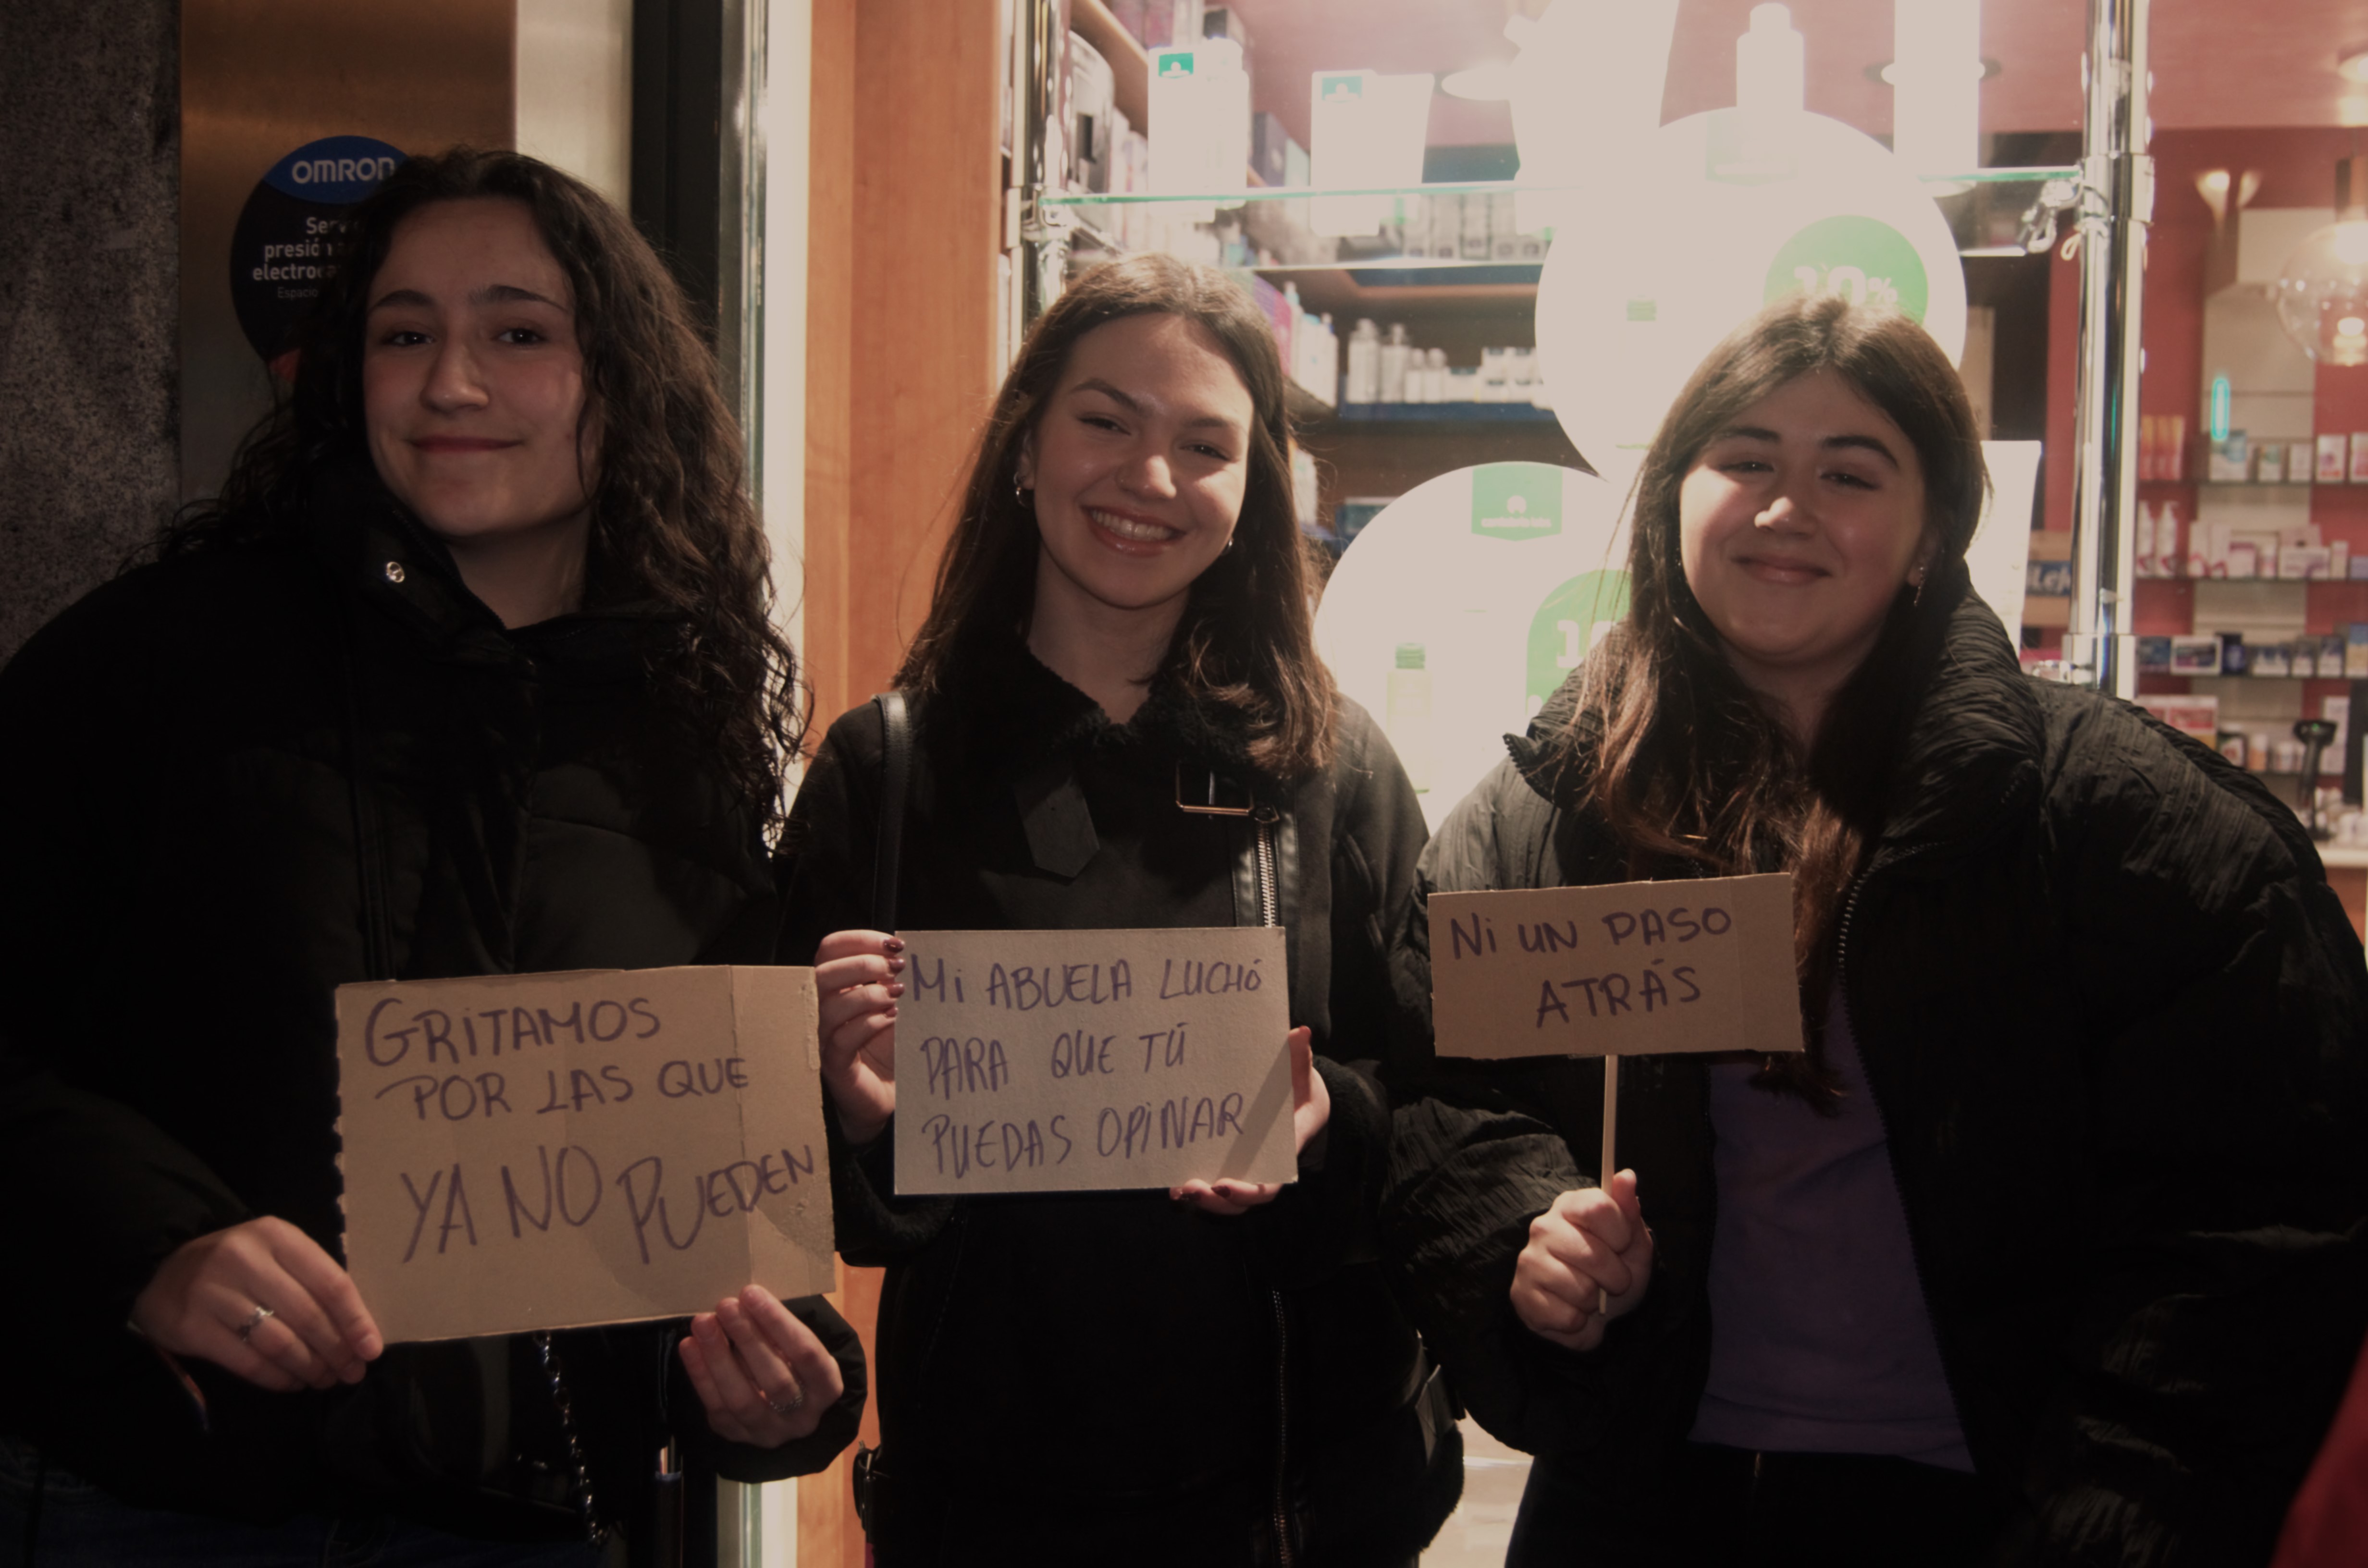 OMRON
presión
GRITAMOS
POR LAS QUE
YA NO PUEDEN
Mi ABUELA LUCHÓ
PARA QUE TÚ
PUEDAS OPiNAR
Ni UN PASO
ATRÁS
10%